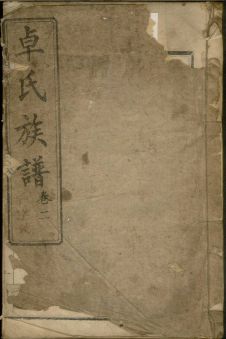 卓氏族譜
卷二